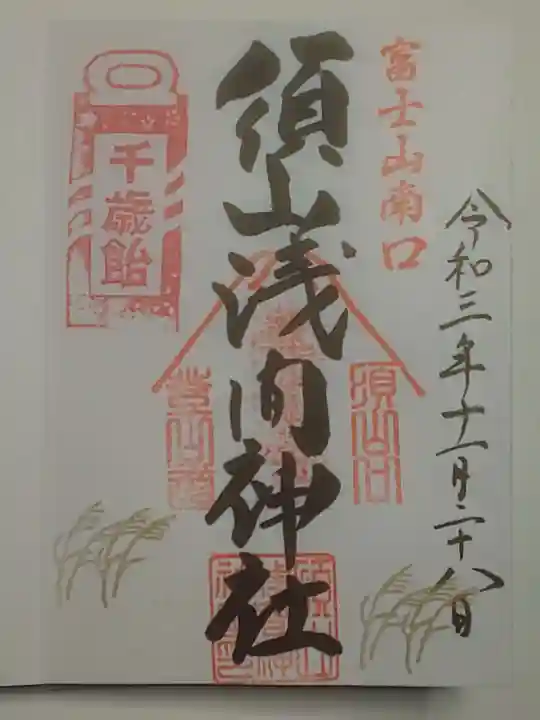 令和三年十一月二十八日
富士山南口
須山口
須山浅間神社
登山道
千歳飴